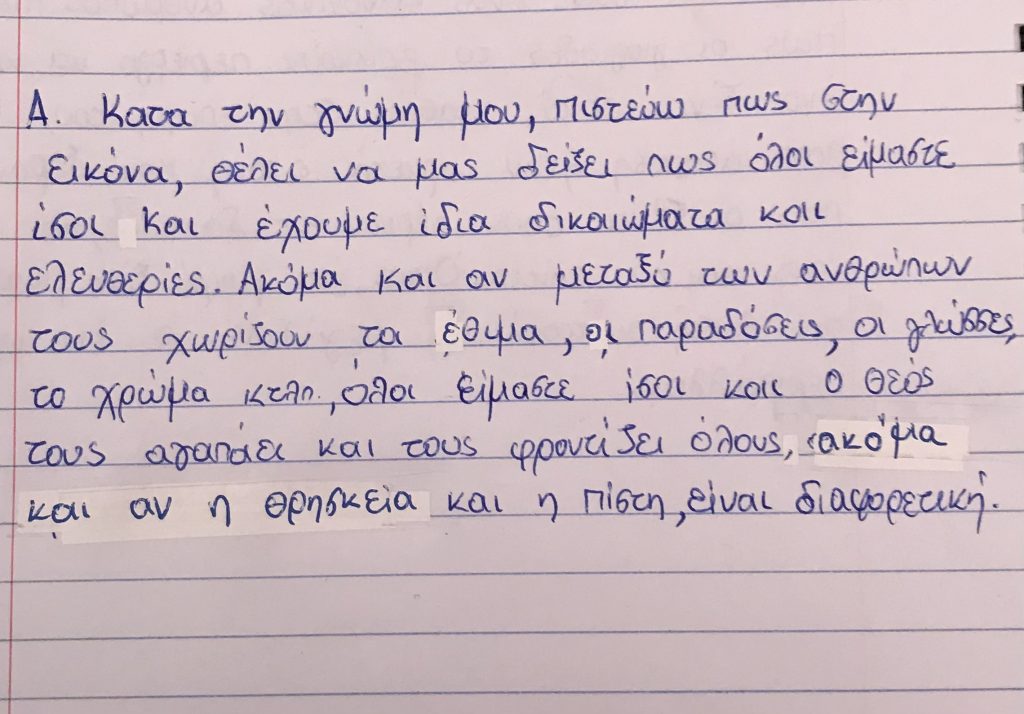 Α. Κατα την γνώμη μου, πιστεύω πως στην
εικόνα, θέλει να μας δείξει πως όλοι είμαστε
ίσοι και έχουμε ίδια δικαιώματα και
ελευθερίες. Ακόμα και αν μεταξύ των ανθρώπων
τους χωρίζουν τα έθιμα, οι παραδόσεις, οι γλώσσες,
το χρώμα κτλπ., όλοι είμαστε ίσοι και ο θεός
τους αγαπάει και τους φροντίζει όλους, ακόμα
και αν η θρησκεία και η πίστη, είναι διαφορετική.